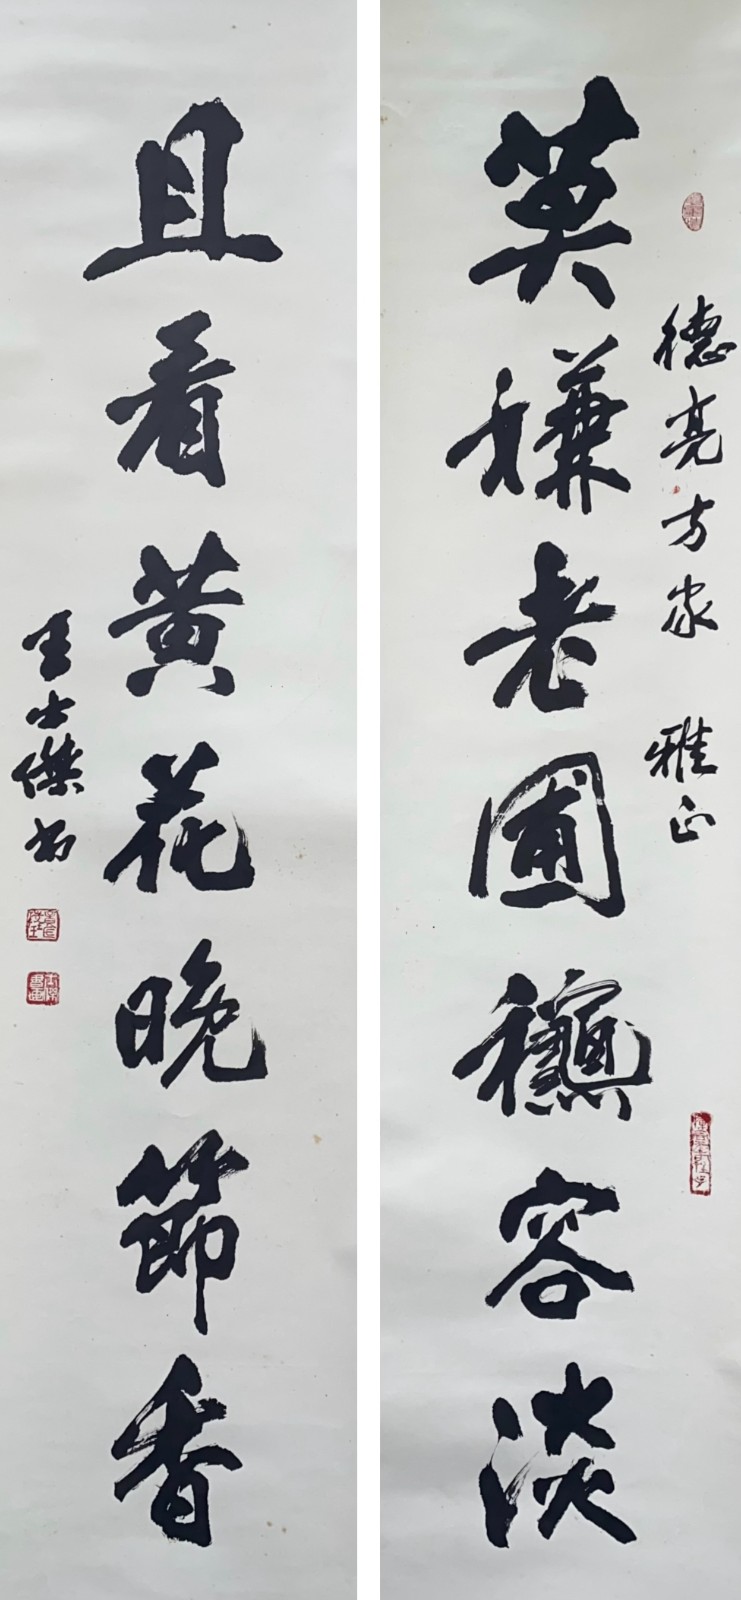 德亮方家 雅正
莫嫌老圃龝容淡
且看黄花晚節香
王士傑书